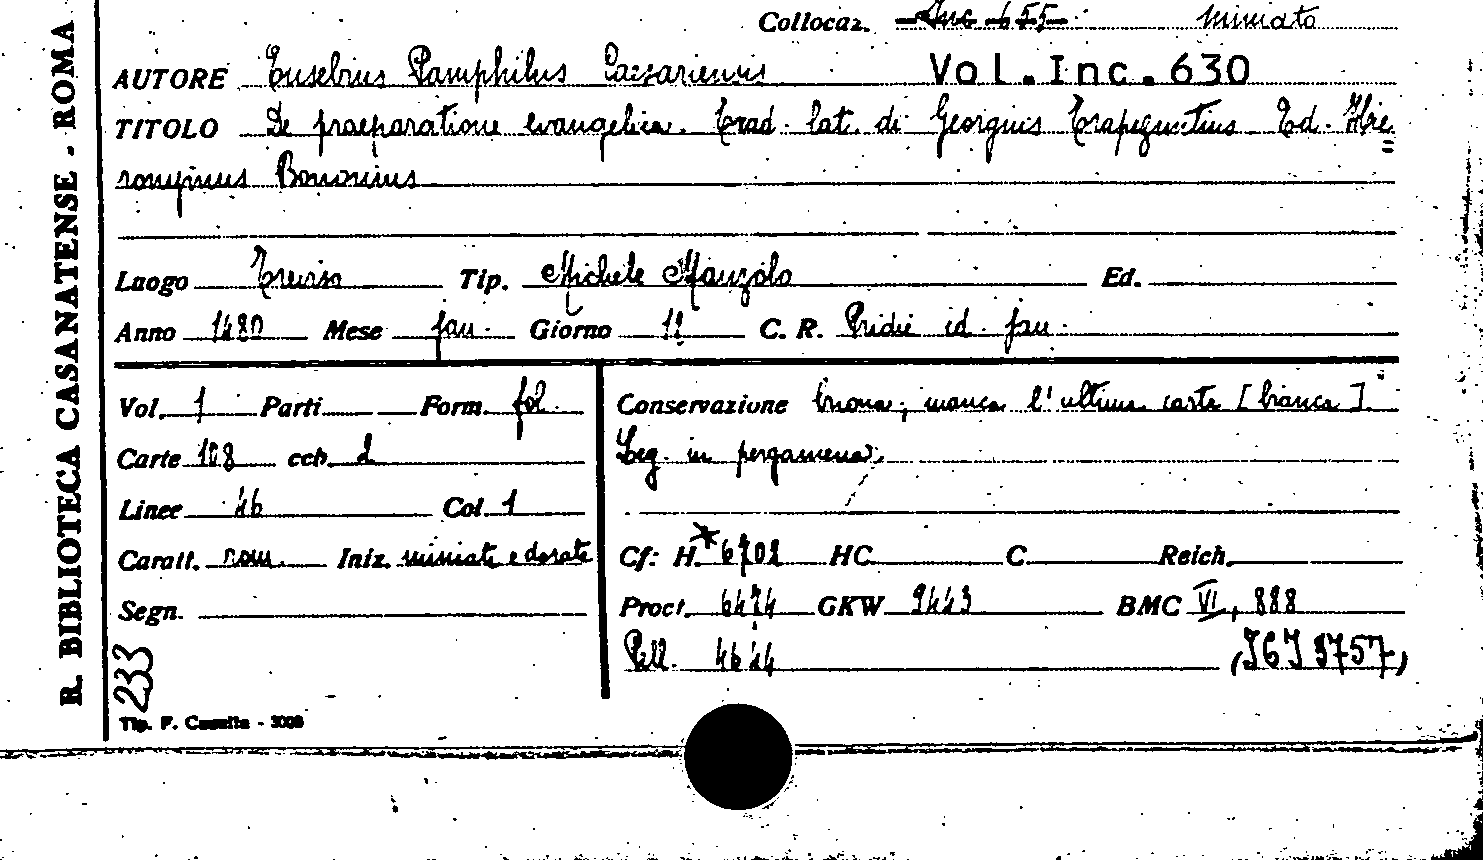 Collocaz. Inc 655 miniato
AUTORE Eusebius Pamphilus Caesariensis Vol.Inc.630
TITOLO De praeparatione evangelica. Trad. lat. di Georgius Trapezuntius. Ed. Hie=
ronymus Bononius
Luogo Treviso Tip. Michele Manzolo Ed.
Anno 1480 Mese jan. Giorno 12 C. R. Pridie id. jan.
Vol. 1 Parti Form. fol.
Carte 108 ccb. 2
Linee 46 Col. 1
Caratt. rom. Iniz. miniate e dorate
Segn.
Conservazione buona; manca l'ultima carta [bianca].
Leg. in pergamena.
Cf: H.* 6702 HC. C. Reich.
Proct. 6474 GKW 9443 BMC VI, 888
Pell. 4644 (IGI 3757)
233
Tip. F. Canella -
R. BIBLIOTECA CASANATENSE - ROMA